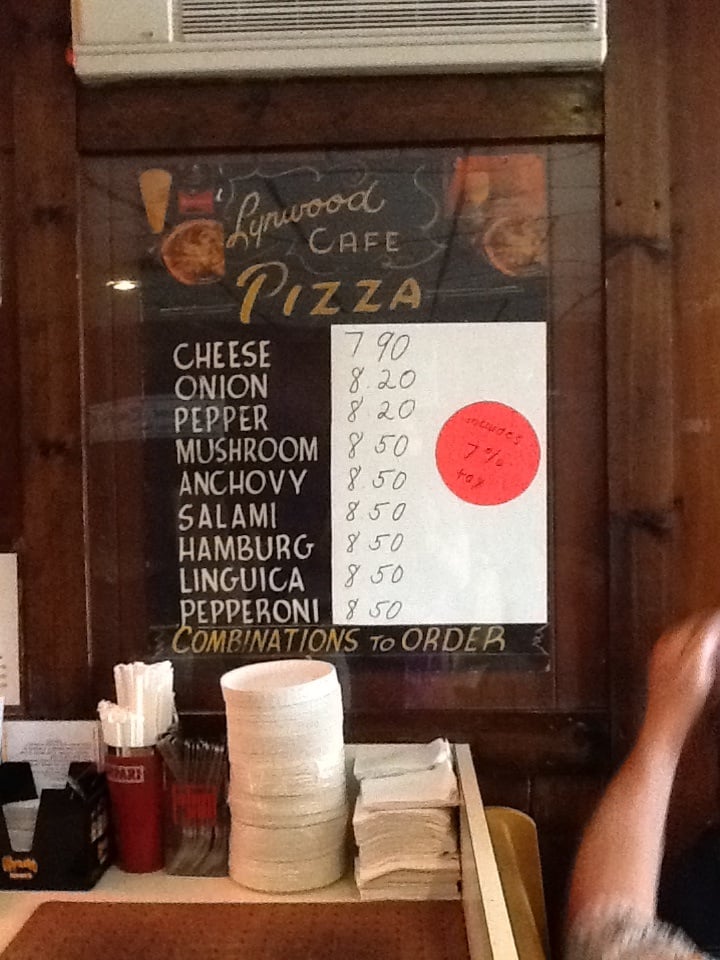 Lynwood
CAFE
PIZZA
CHEESE 7 90
ONION 8.20
PEPPER 8.20
MUSHROOM 8 50
ANCHOVY 8.50
SALAMI 8.50
HAMBURG 8.50
LINGUICA 8.50
PEPPERONI 8.50
includes
7%
tax
COMBINATIONS TO ORDER